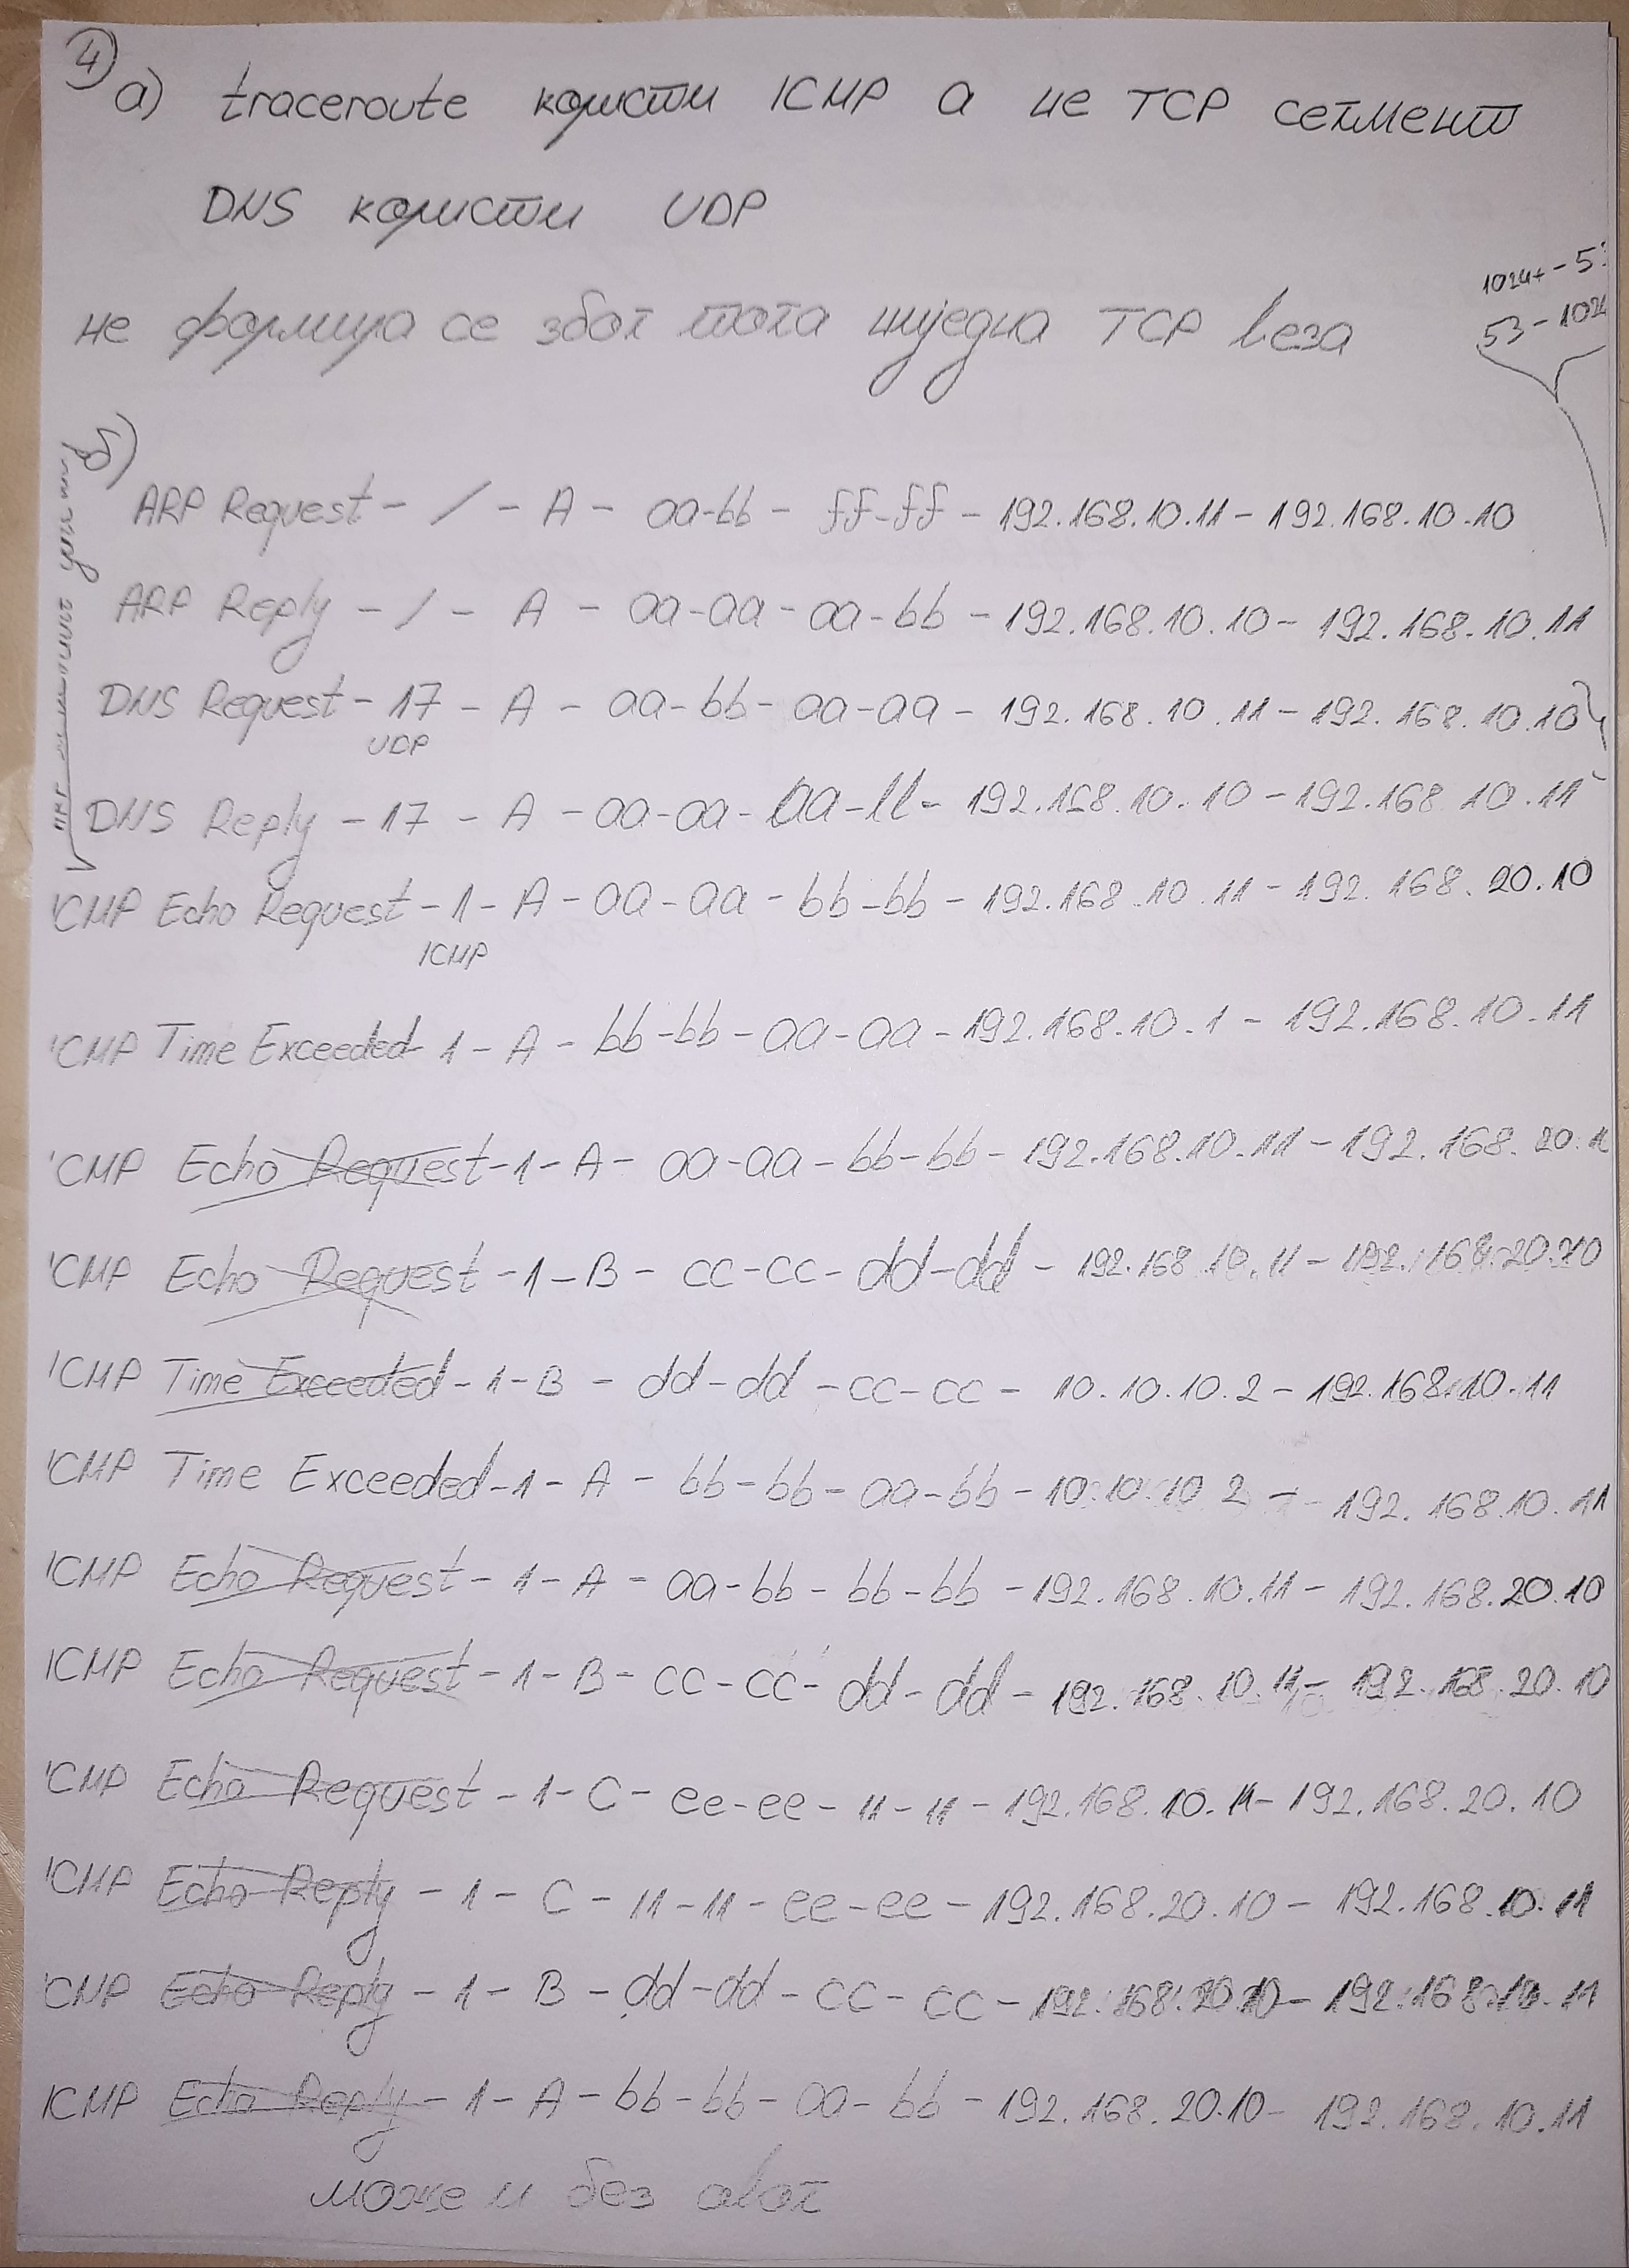 4)
a) traceroute користи ICMP а не TCP сегмент
DNS користи UDP
не формира се због тога ниједна TCP веза
1024+ - 53
53 - 1024
б)
ARP Request - / - A - aa-bb - ff-ff - 192.168.10.11 - 192.168.10.10
ARP Reply - / - A - aa-aa - aa-bb - 192.168.10.10 - 192.168.10.11
DNS Request - 17 - A - aa-bb - aa-aa - 192.168.10.11 - 192.168.10.10
UDP
DNS Reply - 17 - A - aa-aa - aa-ll - 192.168.10.10 - 192.168.10.11
ICMP Echo Request - 1 - A - aa-aa - bb-bb - 192.168.10.11 - 192.168.20.10
ICMP
ICMP Time Exceeded - 1 - A - bb-bb - aa-aa - 192.168.10.1 - 192.168.10.11
ICMP Echo Request - 1 - A - aa-aa - bb-bb - 192.168.10.11 - 192.168.20.1
ICMP Echo Request - 1 - B - cc-cc - dd-dd - 192.168.10.11 - 192.168.20.10
ICMP Time Exceeded - 1 - B - dd-dd - cc-cc - 10.10.10.2 - 192.168.10.11
ICMP Time Exceeded - 1 - A - bb-bb - aa-bb - 10.10.10.2 - 192.168.10.11
ICMP Echo Request - 1 - A - aa-bb - bb-bb - 192.168.10.11 - 192.168.20.10
ICMP Echo Request - 1 - B - cc-cc - dd-dd - 192.168.10.11 - 192.168.20.10
ICMP Echo Request - 1 - C - ee-ee - 11-11 - 192.168.10.11 - 192.168.20.10
ICMP Echo Reply - 1 - C - 11-11 - ee-ee - 192.168.20.10 - 192.168.10.11
ICMP Echo Reply - 1 - B - dd-dd - cc-cc - 192.168.20.10 - 192.168.10.11
ICMP Echo Reply - 1 - A - bb-bb - aa-bb - 192.168.20.10 - 192.168.10.11
може и без овог